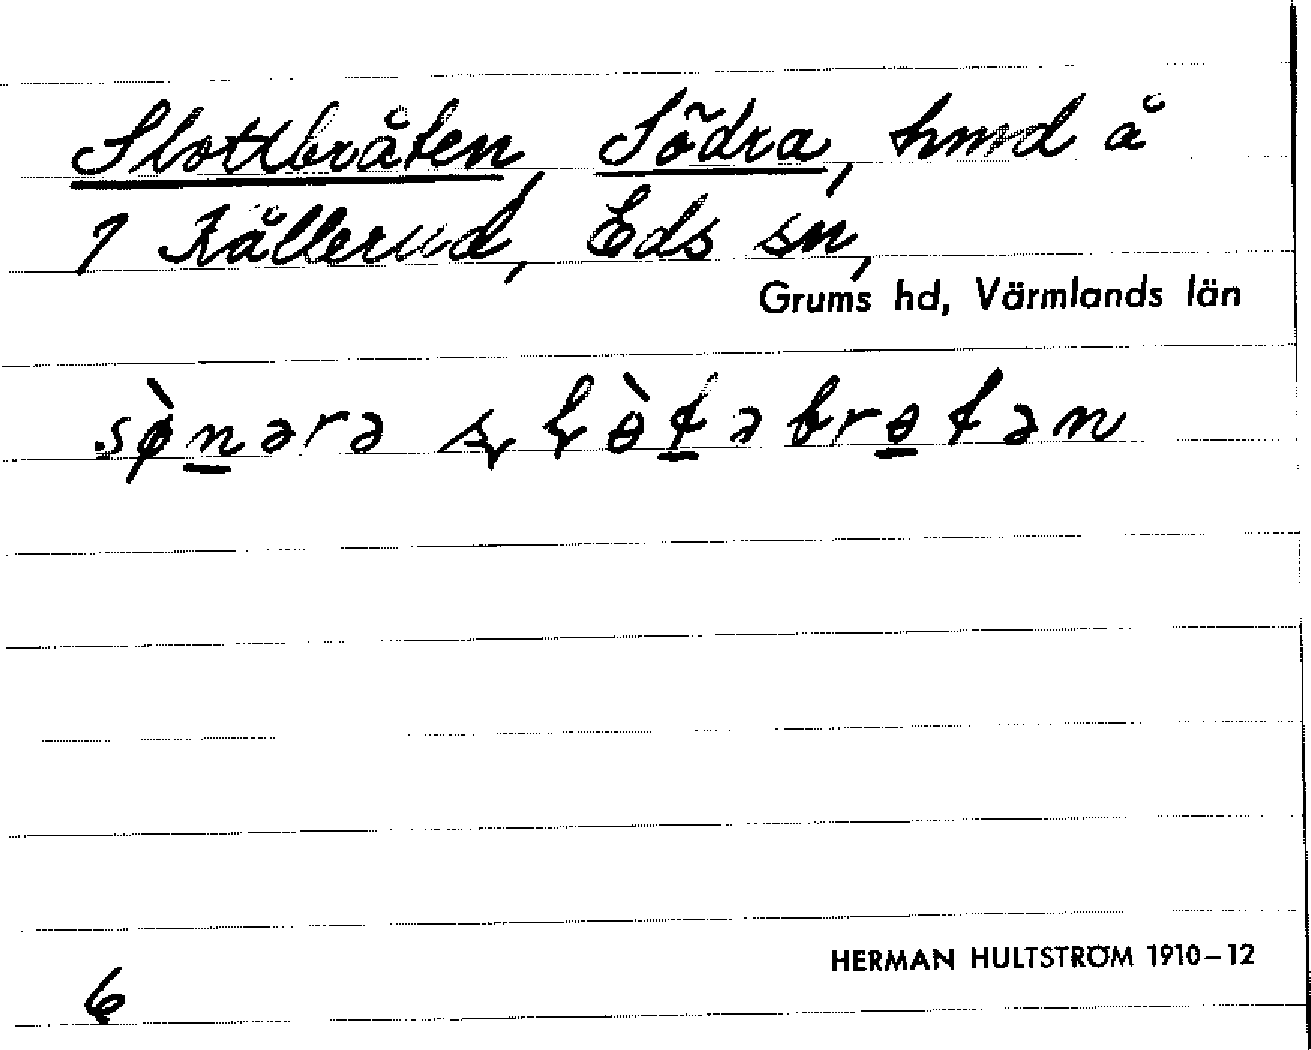 Slottbråten, Södra, hmd å
1 Kållerud, Eds sn,
Grums hd, Värmlands län
sø̀nərə
HERMAN HULTSTRÖM 1910–12
6